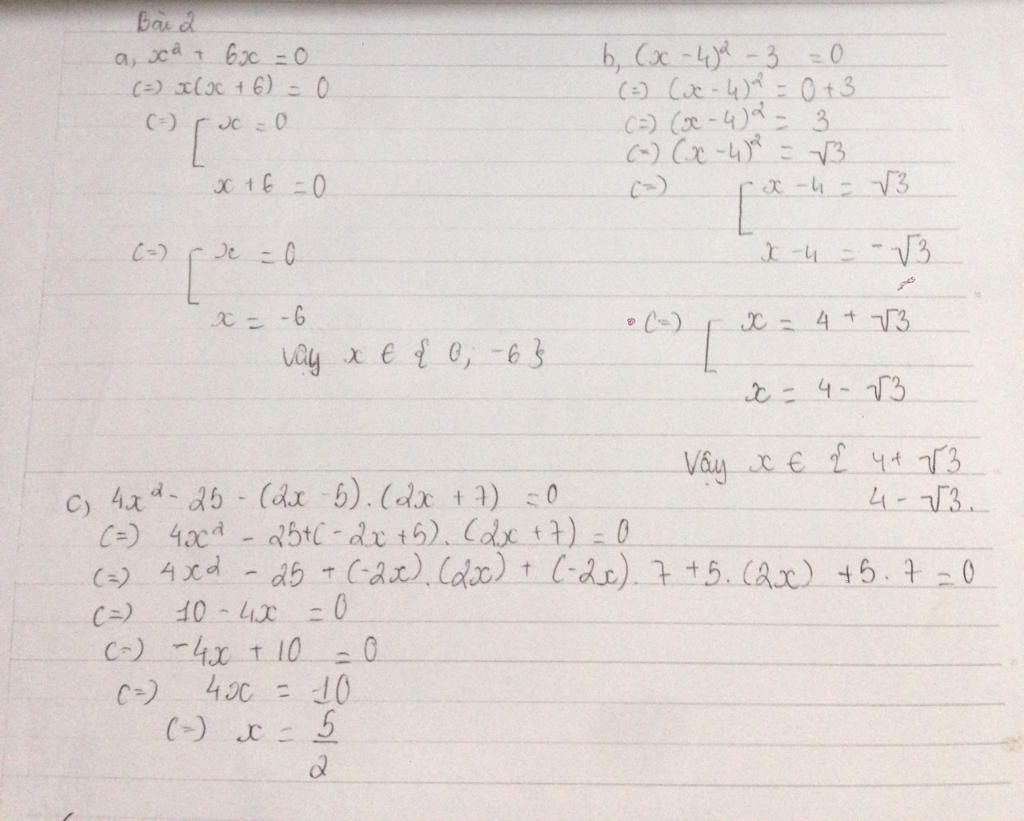 Bài 2
a, x² + 6x = 0
(=) x(x + 6) = 0
(=) [ x = 0
x + 6 = 0
(=) [ x = 0
x = -6
Vậy x ∈ { 0; -6 }
b, (x - 4)² - 3 = 0
(=) (x - 4)² = 0 + 3
(=) (x - 4)² = 3
(=) (x - 4)² = √3
(=) [ x - 4 = √3
x - 4 = -√3
(=) [ x = 4 + √3
x = 4 - √3
Vậy x ∈ { 4 + √3
4 - √3.
c, 4x² - 25 - (2x - 5).(2x + 7) = 0
(=) 4x² - 25+(-2x + 5).(2x + 7) = 0
(=) 4x² - 25 + (-2x).(2x) + (-2x).7 + 5.(2x) + 5.7 = 0
(=) 10 - 4x = 0
(=) -4x + 10 = 0
(=) 4x = 10
(=) x = 5/2